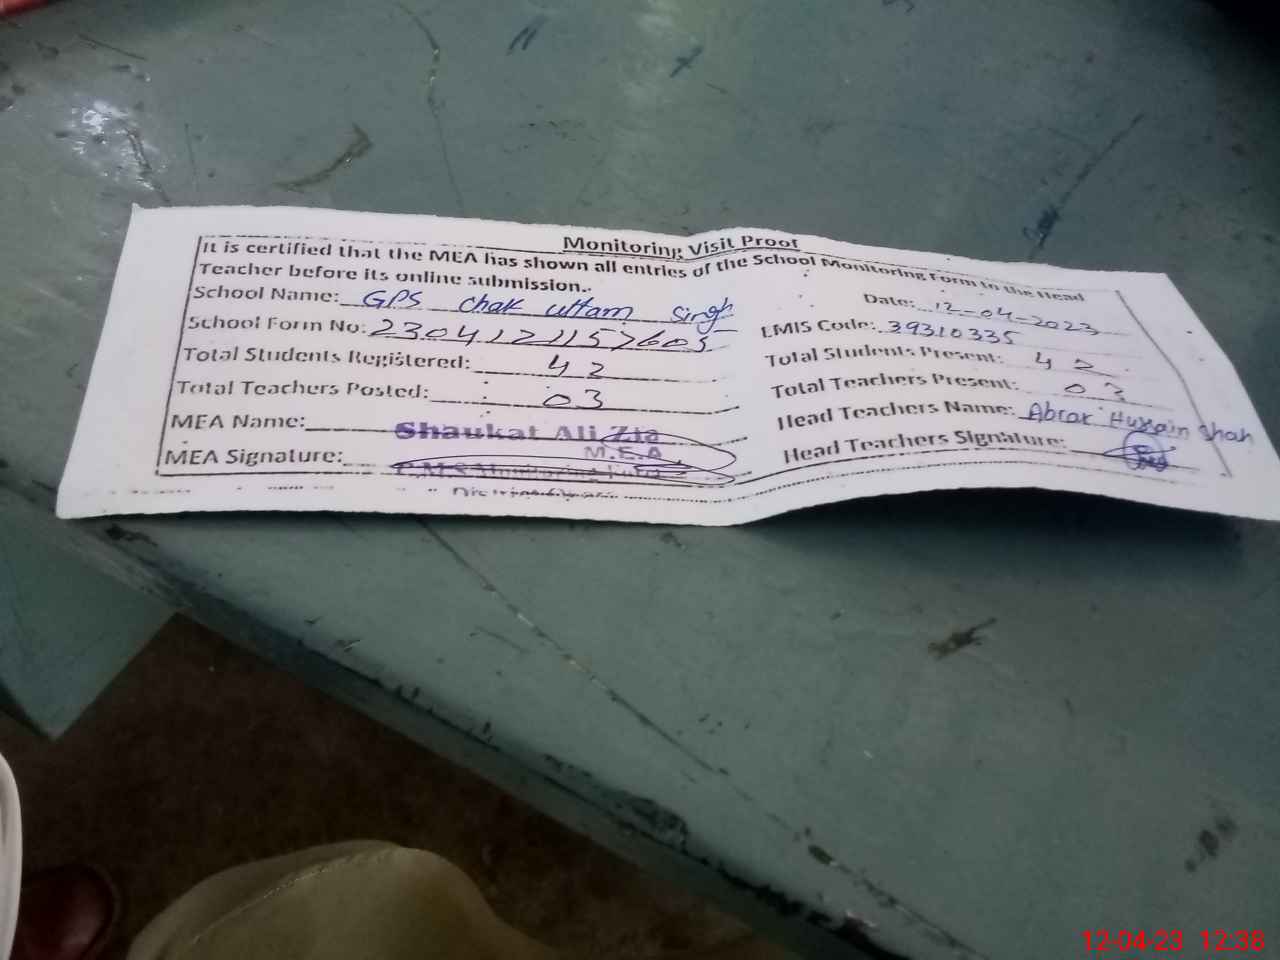 Monitoring Visit Proof
It is certified that the MEA has shown all entries of the School Monitoring Form to the Head
Teacher before its online submission.
School Name: GPS Chak Uttam Singh Date: 12-04-2023
School Form No: 2304121157605 EMIS Code: 39310335
Total Students Registered: 42 Total Students Present: 42
Total Teachers Posted: 03 Total Teachers Present: 03
MEA Name: Shaukat Ali Zia Head Teachers Name: Abrar Hussain Shah
M.E.A
MEA Signature: Head Teachers Signature:
12-04-23 12:38